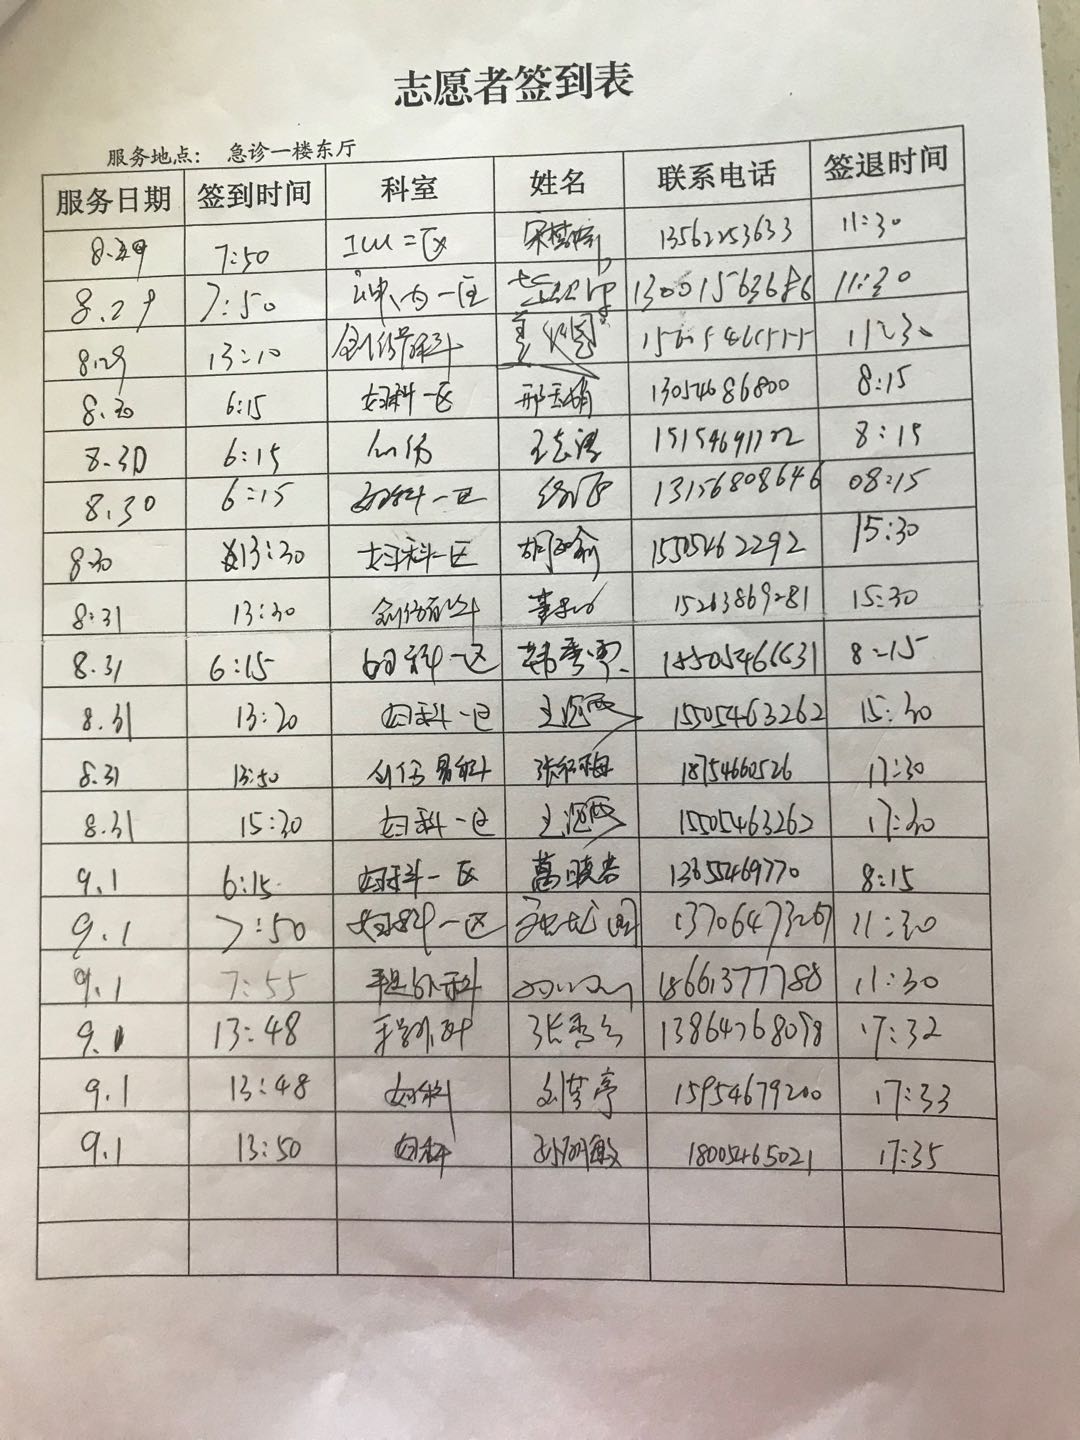 志愿者签到表
服务地点： 急诊一楼东厅
服务日期 签到时间 科室 姓名 联系电话 签退时间
8.29 7:50 ICU二区 13562253633 11:30
8.29 7:50 神内一区 13001563686 11:30
8.29 13:10 创伤骨科 11:30
8.30 6:15 妇科一区 13054686800 8:15
8.30 6:15 创伤 15154691722 8:15
8.30 6:15 妇科一区 13156808646 08:15
8.30 13:30 妇科一区 15505462292 15:30
8.31 13:30 创伤骨科 15263869281 15:30
8.31 6:15 妇科一区 8:15
8.31 13:20 妇科一区 15505463262 15:30
8.31 13:50 创伤骨科 张红梅 18754660526 17:30
8.31 15:30 妇科一区 15505463262 17:30
9.1 6:15 妇科一区 葛晓岩 13655469770 8:15
9.1 7:50 妇科一区 13706473267 11:30
9.1 7:55 手足外科 18661377788 11:30
9.1 13:48 手足外科 13864768098 17:32
9.1 13:48 妇科 刘梦亭 15954679200 17:33
9.1 13:50 妇科 孙明敏 18005465021 17:35